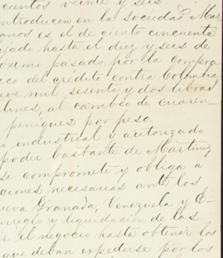 cientos veinte y seis
introducen en la Sociedad Ma
anos es el de ciento cincuenta
gado hasta el diez y seis de
óximo pasado, por la compra
co del crédito contra Colombia
eve mil sesenta y dos libras
lines, al cambio de cuaren
peniques por peso
industrial y autorizado
poder bastante de Martínez
se compromete y obliga a
ciones necesarias ante los
ueva Granada, Venezuela y E
arreglo y liquidación de las
n el negocio hasta obtener los
que deban expedirse por los